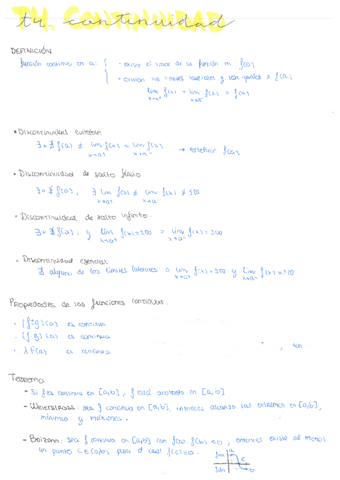 T4. CONTINUIDAD
t4. continuidad
DEFINICIÓN
función continua en a:
- existe el valor de la función en f(a)
- existen los límites laterales y son iguales a f(a)
lim f(x) = lim f(x) = f(a)
• Discontinuidad evitable
∃ o ∄ f(a) ≠ lim f(x) = lim f(x) → redefinir f(a)
• Discontinuidad de salto finito
∃ o ∄ f(a),
• Discontinuidad de salto infinito
∃ o ∄ f(a), y lim
• Discontinuidad esencial
∄ alguno de los límites laterales o lim y lim
Propiedades de las funciones continuas
• (f+g)(a) es continua
• (f·g)(a) es continua
• λ f(a) es continua
Teorema
- Si f es continua en [a,b], f está acotada en [a,b]
- Weierstrass: sea f continua en [a,b], entonces alcanza sus extremos en [a,b],
mínimo y máximo.
- Bolzano: sea f continua en [a,b] con f(a)·f(b)<0, entonces existe al menos
un punto c∈(a,b) para el cual f(c)=0.